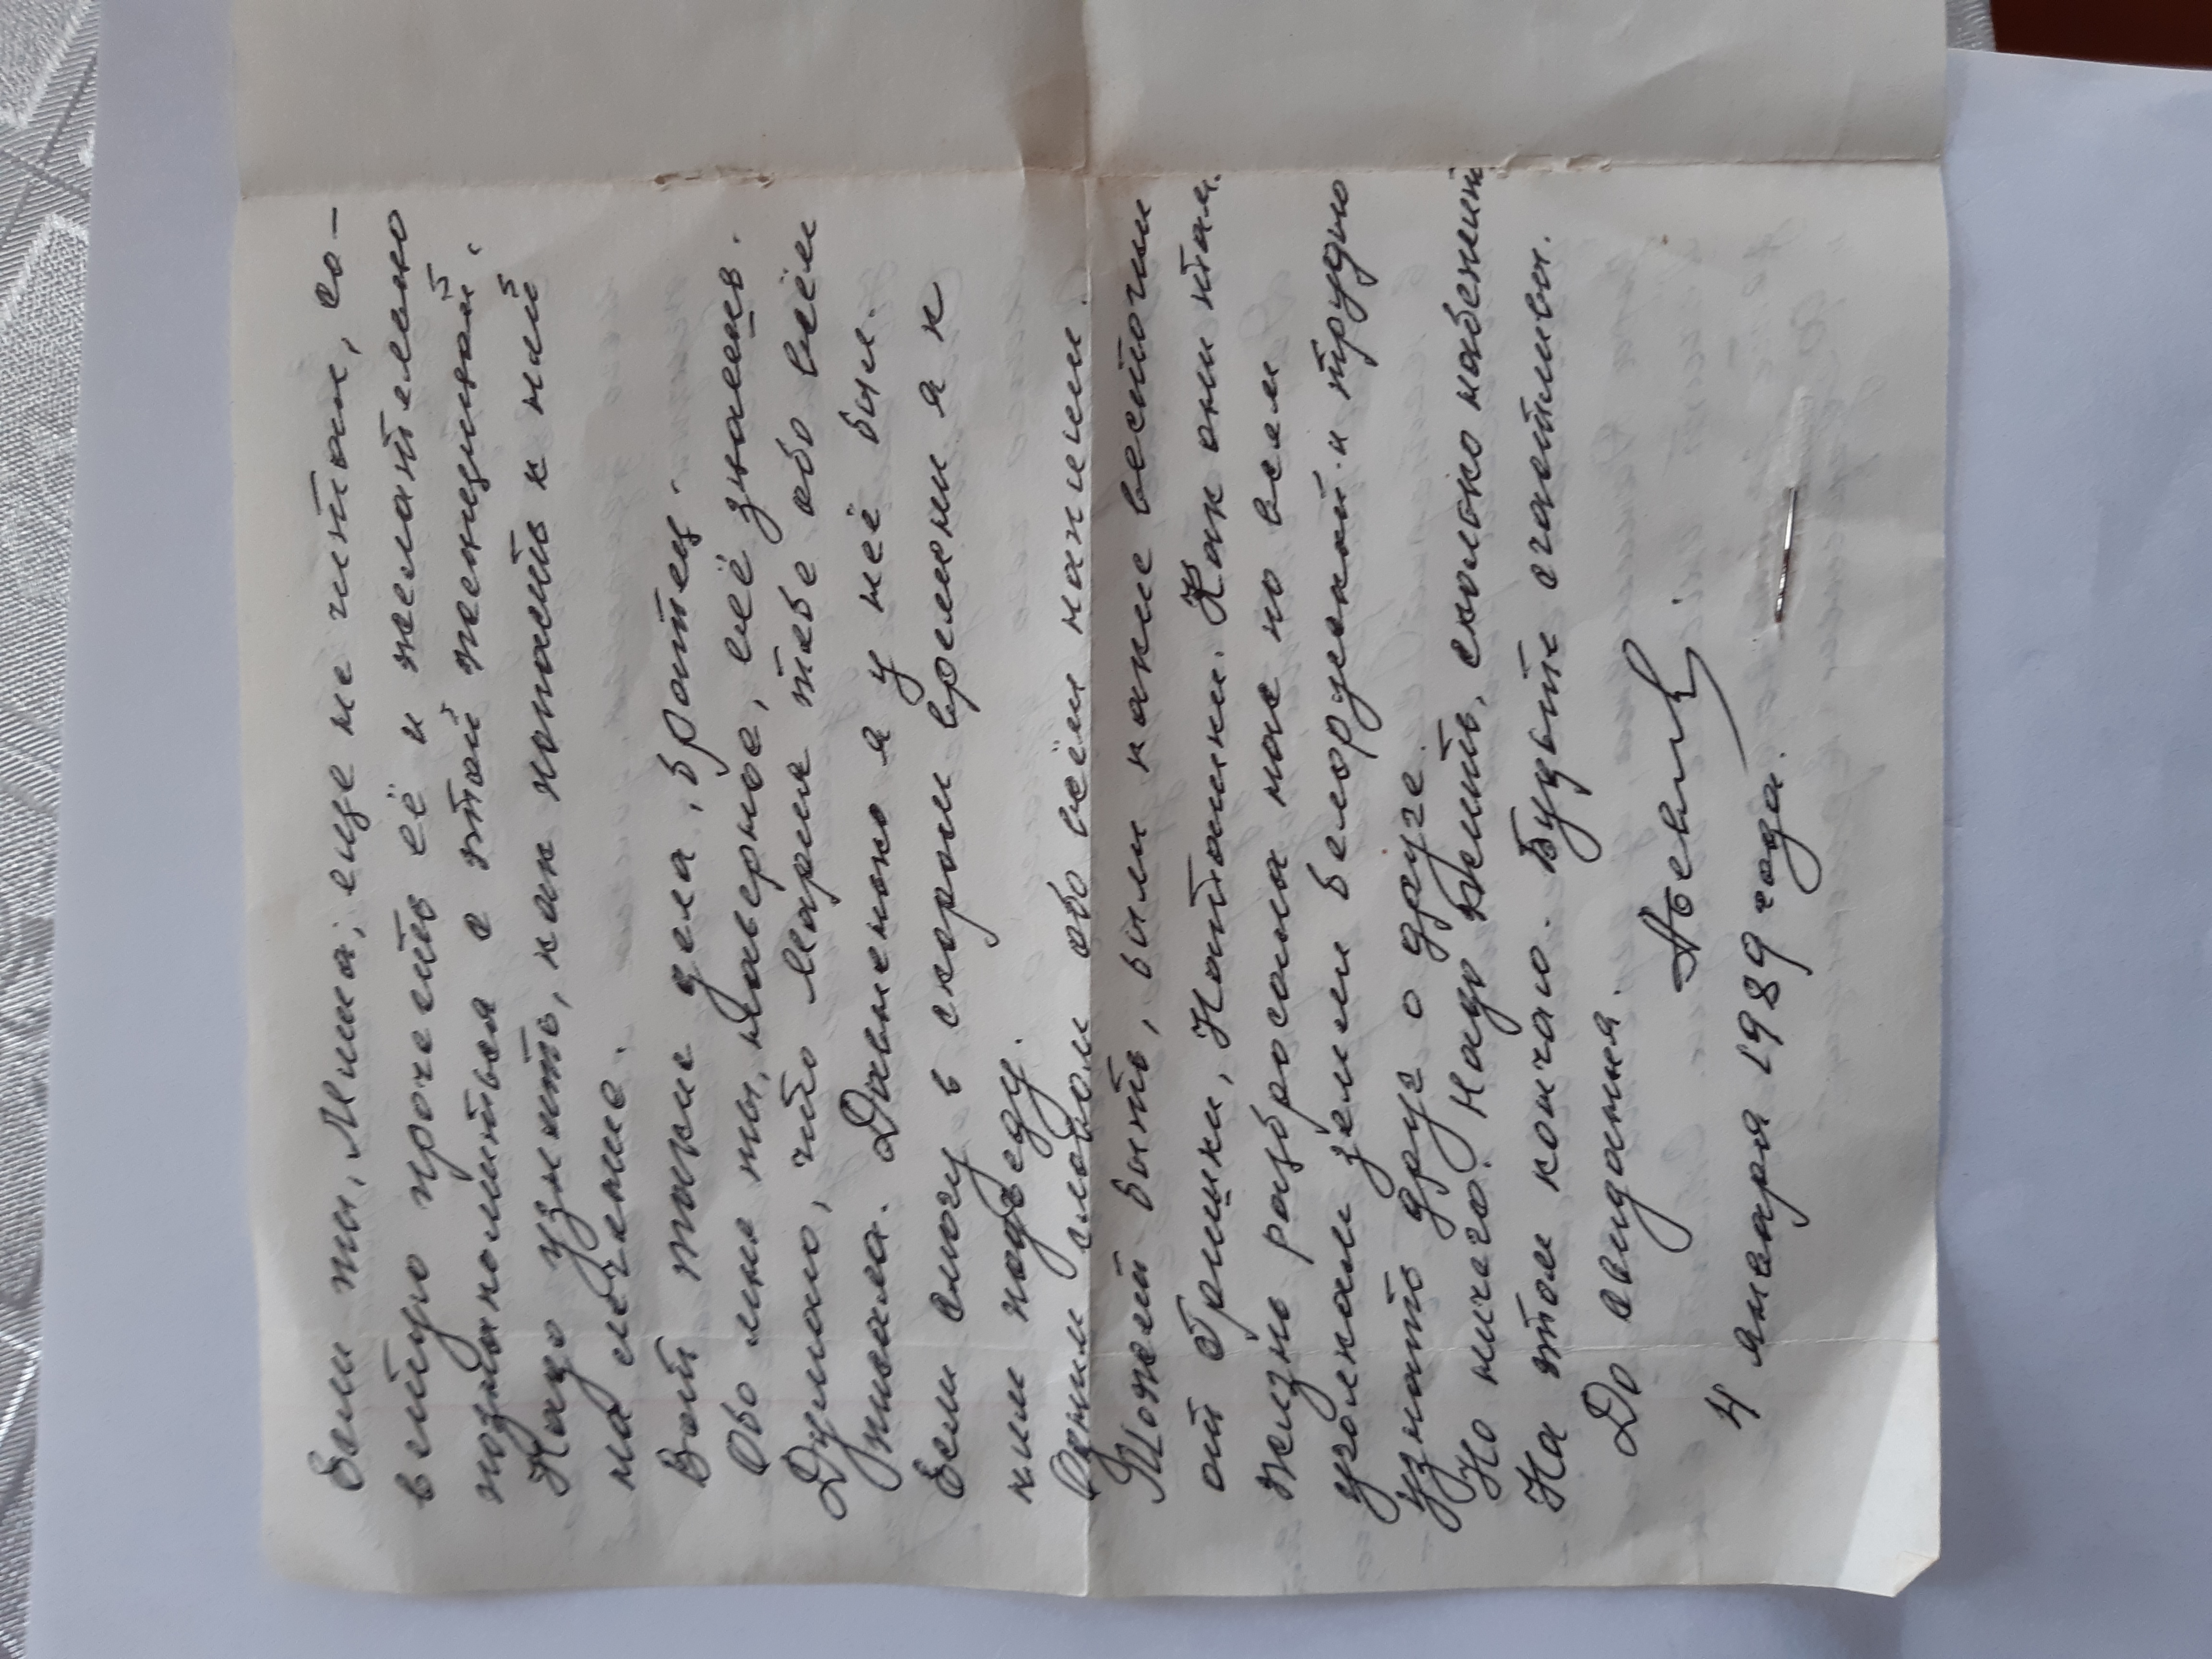 Если ты, Миша, еще не читал, со-
ветую прочесть её и желательно
познакомиться с этой женщиной.
Надо узнать, как попасть к ней
на лечение.
Вот такие дела, братец.
Обо мне ты, наверное, всё знаешь.
Думаю, что Мария тебе обо всём
писала. Давненько я у неё был.
Если смогу в скором времени я к
ним подъеду.
Одним словом обо всём напиши.
Может быть, были какие весточки
от Гришки, Наташки. Как они там.
Жизнь разбросала нас по всем
уголкам земли белорусской и трудно
узнать друг о друге.
Но ничего. Надо жить, сколько небения
На этом кончаю. Будьте счастливы.
До свидания.
4 января 1989 года.